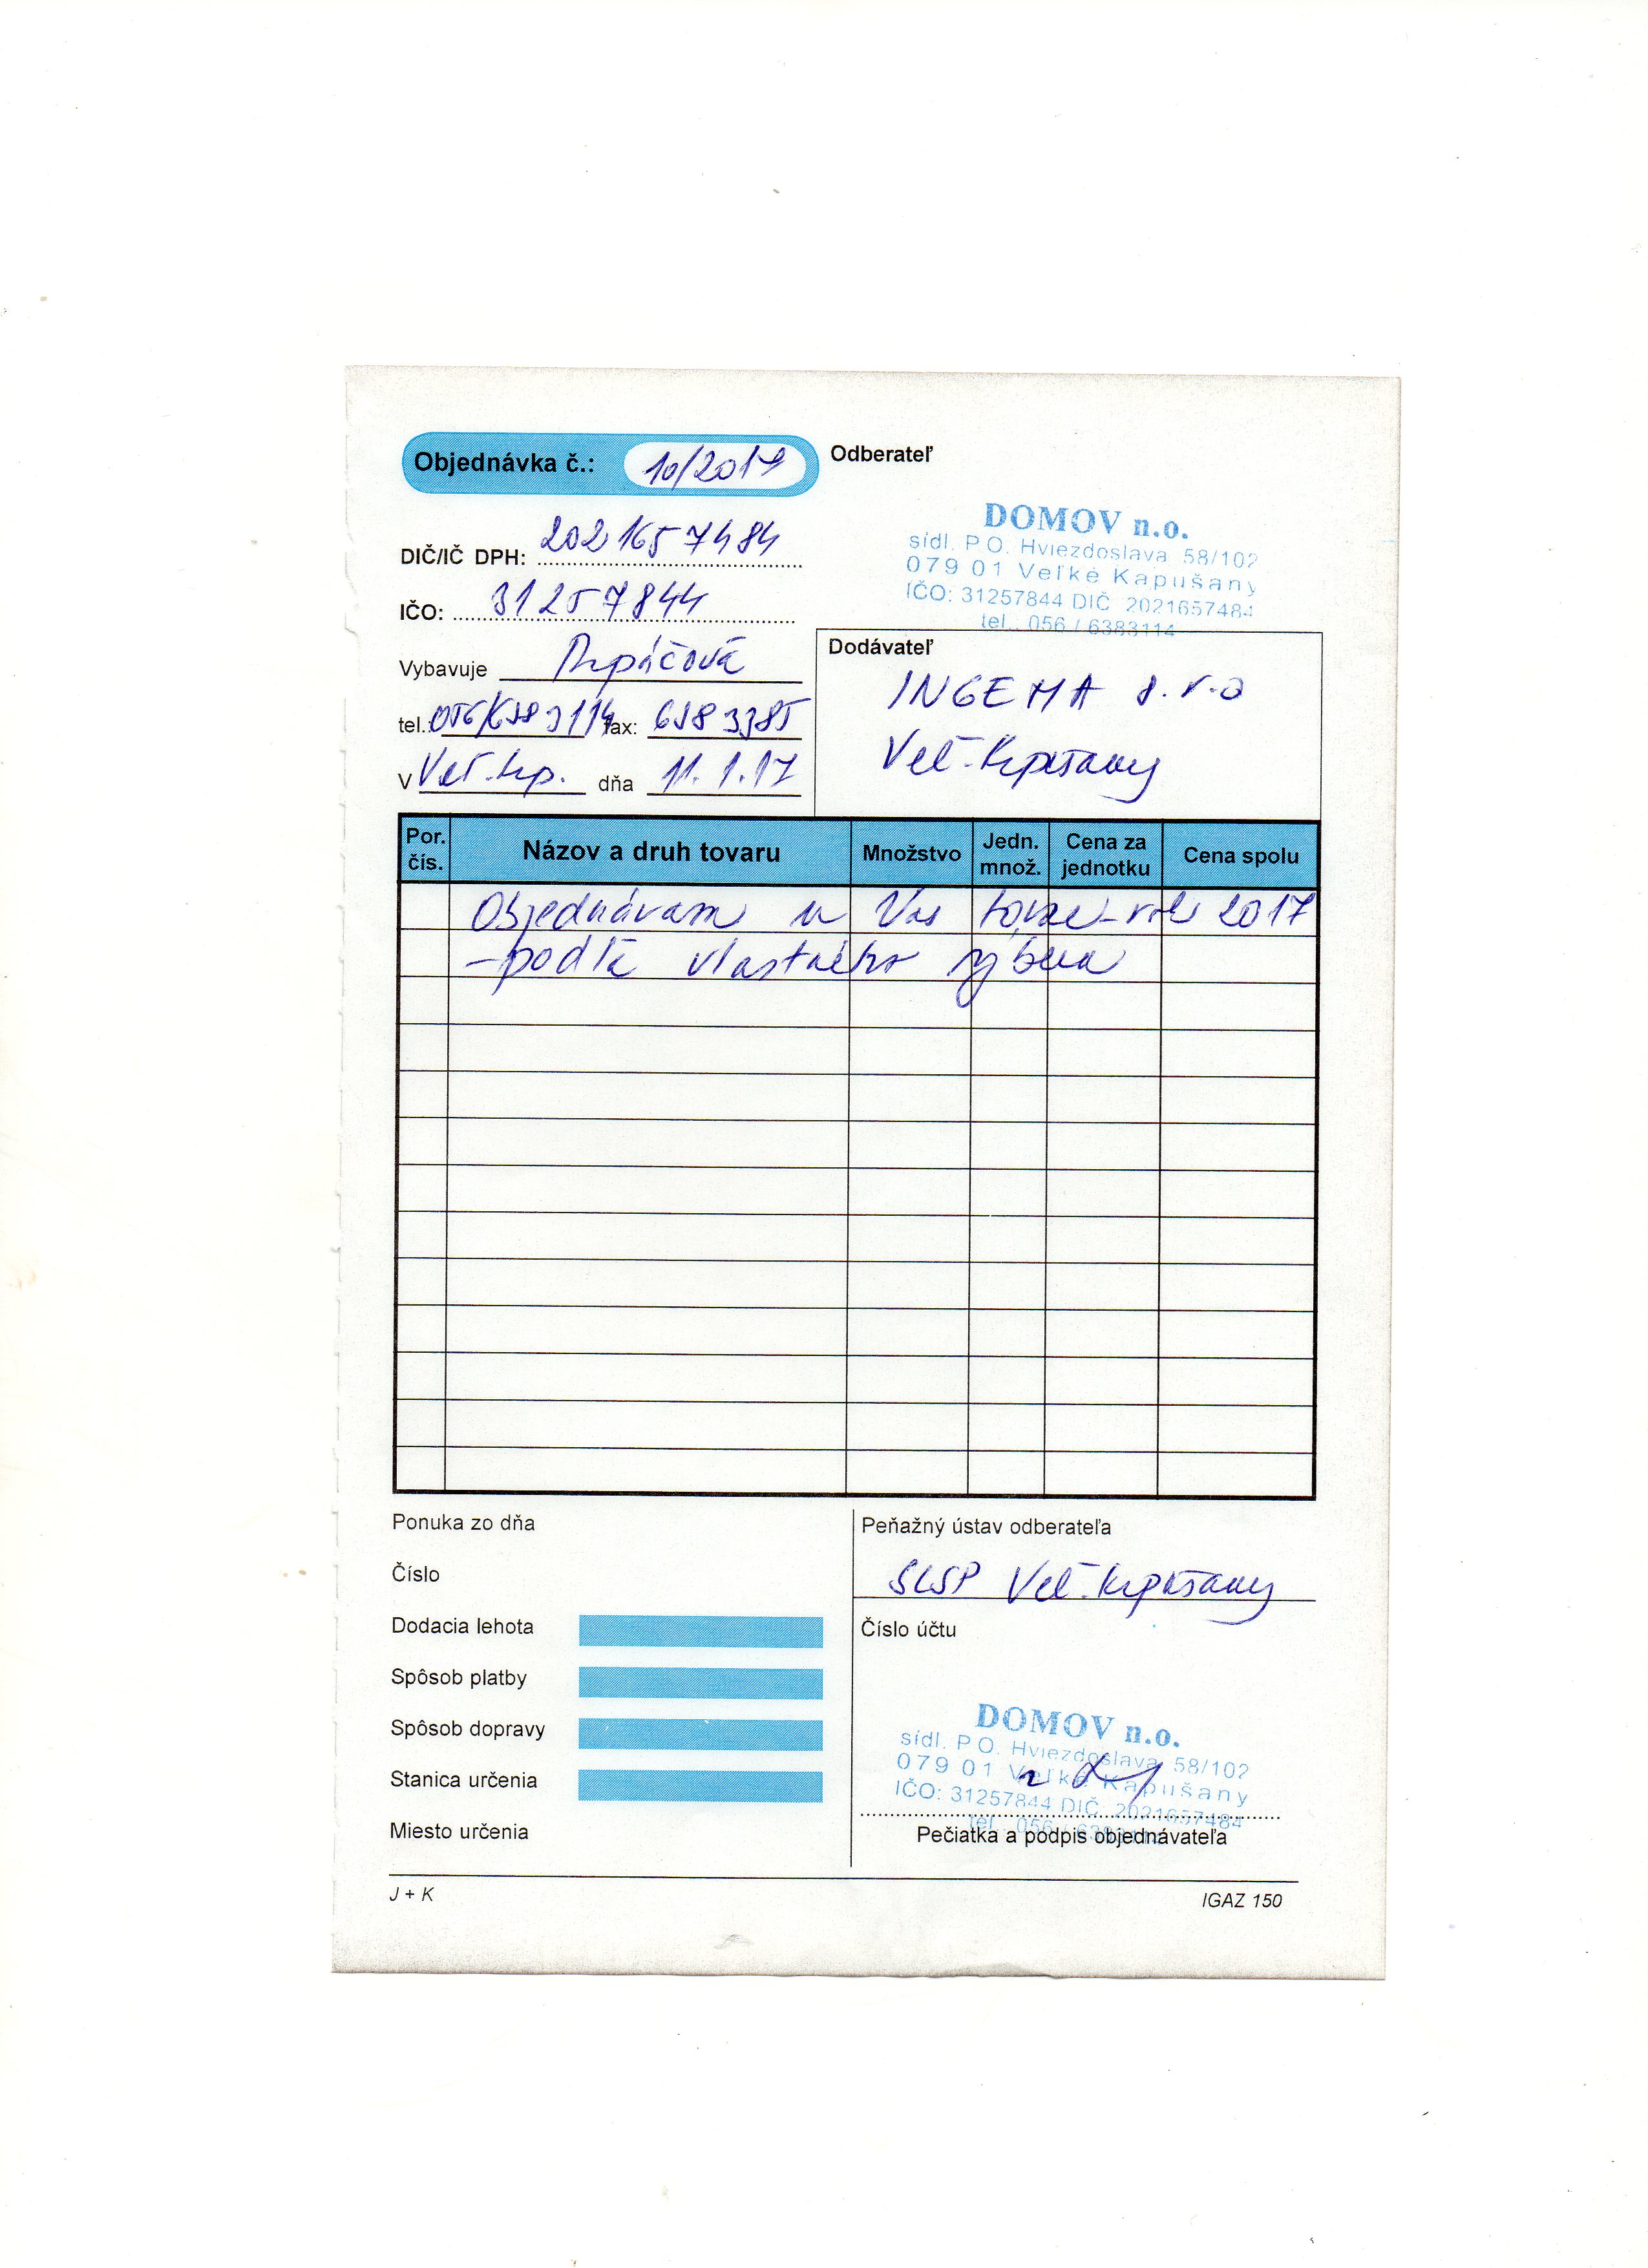 Objednávka č.: 10/2017
Odberateľ
DOMOV n.o.
sídl. P.O. Hviezdoslava 58/102
079 01 Veľké Kapušany
IČO: 31257844 DIČ 2021657484
tel.: 056 / 6383114
DIČ/IČ DPH: 2021657484
IČO: 31257844
Vybavuje
tel.: 056/6383114 fax: 6383385
V Veľ. Kp. dňa 11.1.17
Dodávateľ
INGEMA s.r.o
Veľ. Kapušany
Por. čís.
Názov a druh tovaru
Množstvo
Jedn. množ.
Cena za jednotku
Cena spolu
Objednávam u Vás rok 2017
- podľa vlastného výberu
Ponuka zo dňa
Číslo
Dodacia lehota
Spôsob platby
Spôsob dopravy
Stanica určenia
Miesto určenia
Peňažný ústav odberateľa
SLSP Veľ. Kapušany
Číslo účtu
DOMOV n.o.
sídl. P.O. Hviezdoslava 58/102
079 01 Veľké Kapušany
IČO: 31257844 DIČ 2021657484
tel.: 056 / 6383114
Pečiatka a podpis objednávateľa
J + K
IGAZ 150